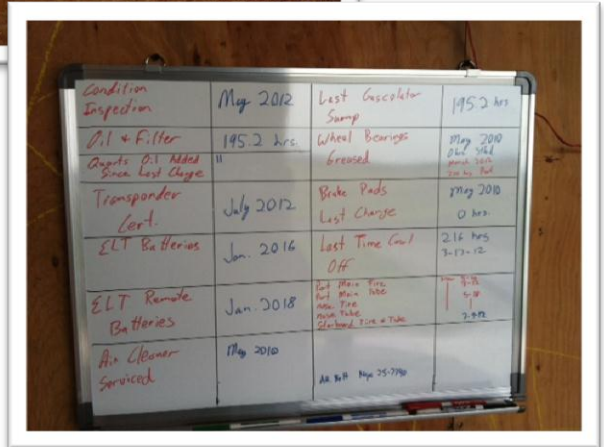 Condition
Inspection
May 2012
Last Gascolator
Sump
195.2 hrs
Oil + Filter
195.2 hrs.
Wheel Bearings
Greased
May 2010
0 hrs
Quarts Oil Added
Since Last Change
II
Transponder
Cert.
July 2012
Brake Pads
Last Change
May 2010
0 hrs.
ELT Batteries
Jan. 2016
Last Time Cowl
Off
216 hrs
3-17-12
ELT Remote
Batteries
Jan. 2018
Port Main Tire
Port Main Tube
Nose Tire
Nose Tube
Starboard Tire + Tube
Air Cleaner
Serviced
May 2010
Alt. Belt Napa